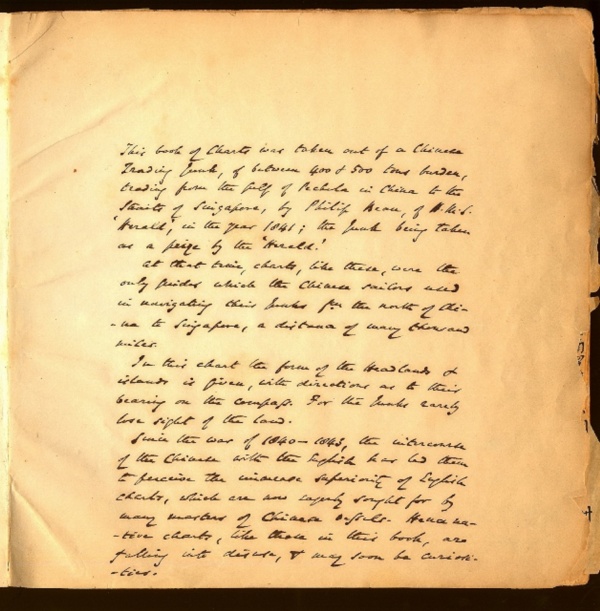 This book of Charts was taken out of a Chinese
Trading Junk, of between 400 & 500 tons burden,
trading from the Gulf of Pechele in China to the
Straits of Singapore, by Philip Bean, of H.M.S.
'Herald', in the year 1841; the Junk being taken
as a prize by the 'Herald.'
At that time, charts, like these, were the
only guides which the Chinese sailors used
in navigating their Junks from the north of Chi-
-na to Singapore, a distance of many thousand
miles.
In this chart the form of the Headlands &
islands is given, with directions as to their
bearing on the compass. For the Junks rarely
lose sight of the land.
Since the war of 1840-1843, the intercourse
of the Chinese with the English has led them
to perceive the immense superiority of English
charts, which are now eagerly sought for by
many masters of Chinese vessels. Hence na-
-tive charts, like those in this book, are
falling into disuse, & may soon be curiosi-
-ties.